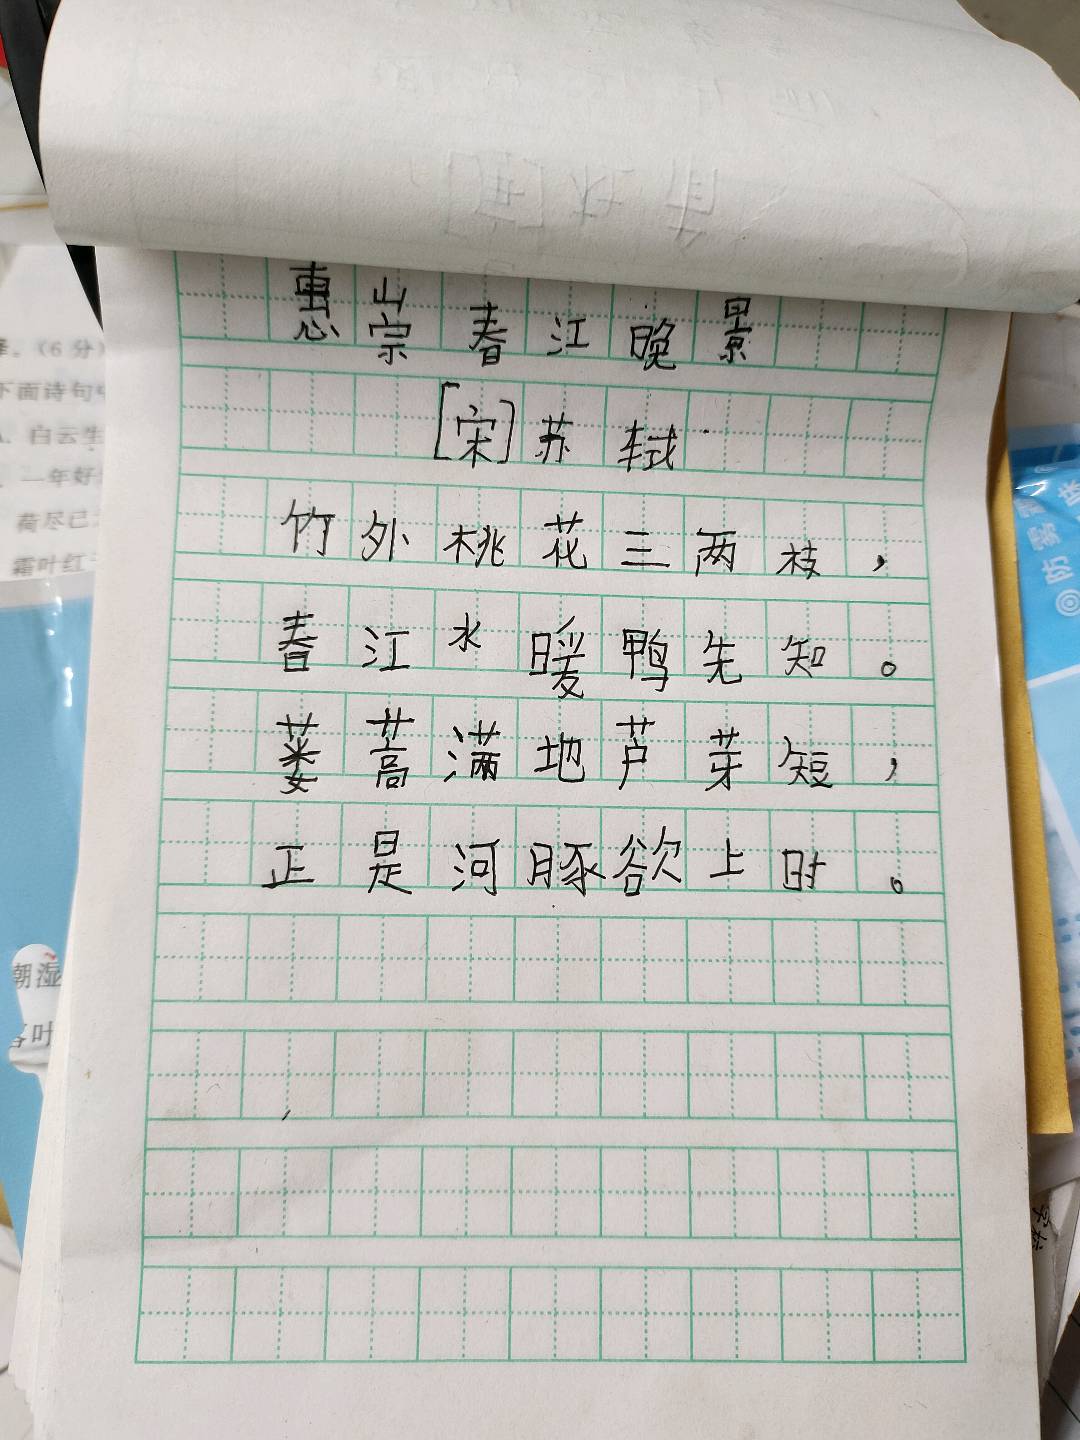 惠崇春江晚景
[宋]苏轼
竹外桃花三两枝，
春江水暖鸭先知。
蒌蒿满地芦芽短，
正是河豚欲上时。
。(6分)
下面诗句
白云生
一年好
荷尽已
霜叶红
潮湿
客叶
防雾